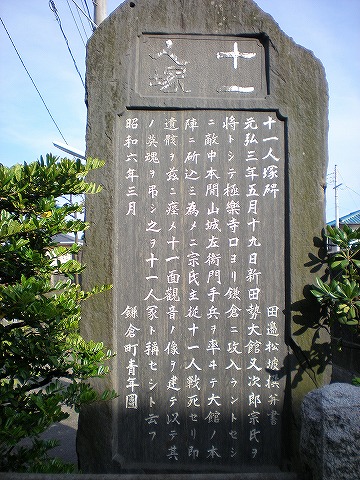 十一
人塚
十一人塚碑 田邊松坡撰并書
元弘三年五月十九日新田勢大館又次郎宗氏ヲ
將トシテ極樂寺口ヨリ鎌倉ニ攻入ラントセシ
ニ敵中本間山城左衛門手兵ヲ率ヰテ大館ノ本
陣ニ斫込ミ為メニ宗氏主從十一人戰死セリ即
遺骸ヲ茲ニ瘞メ十一面觀音ノ像ヲ建テ以テ其
ノ英魂ヲ弔シ之ヲ十一人塚ト稱セシト云フ
昭和六年三月 鎌倉町青年團